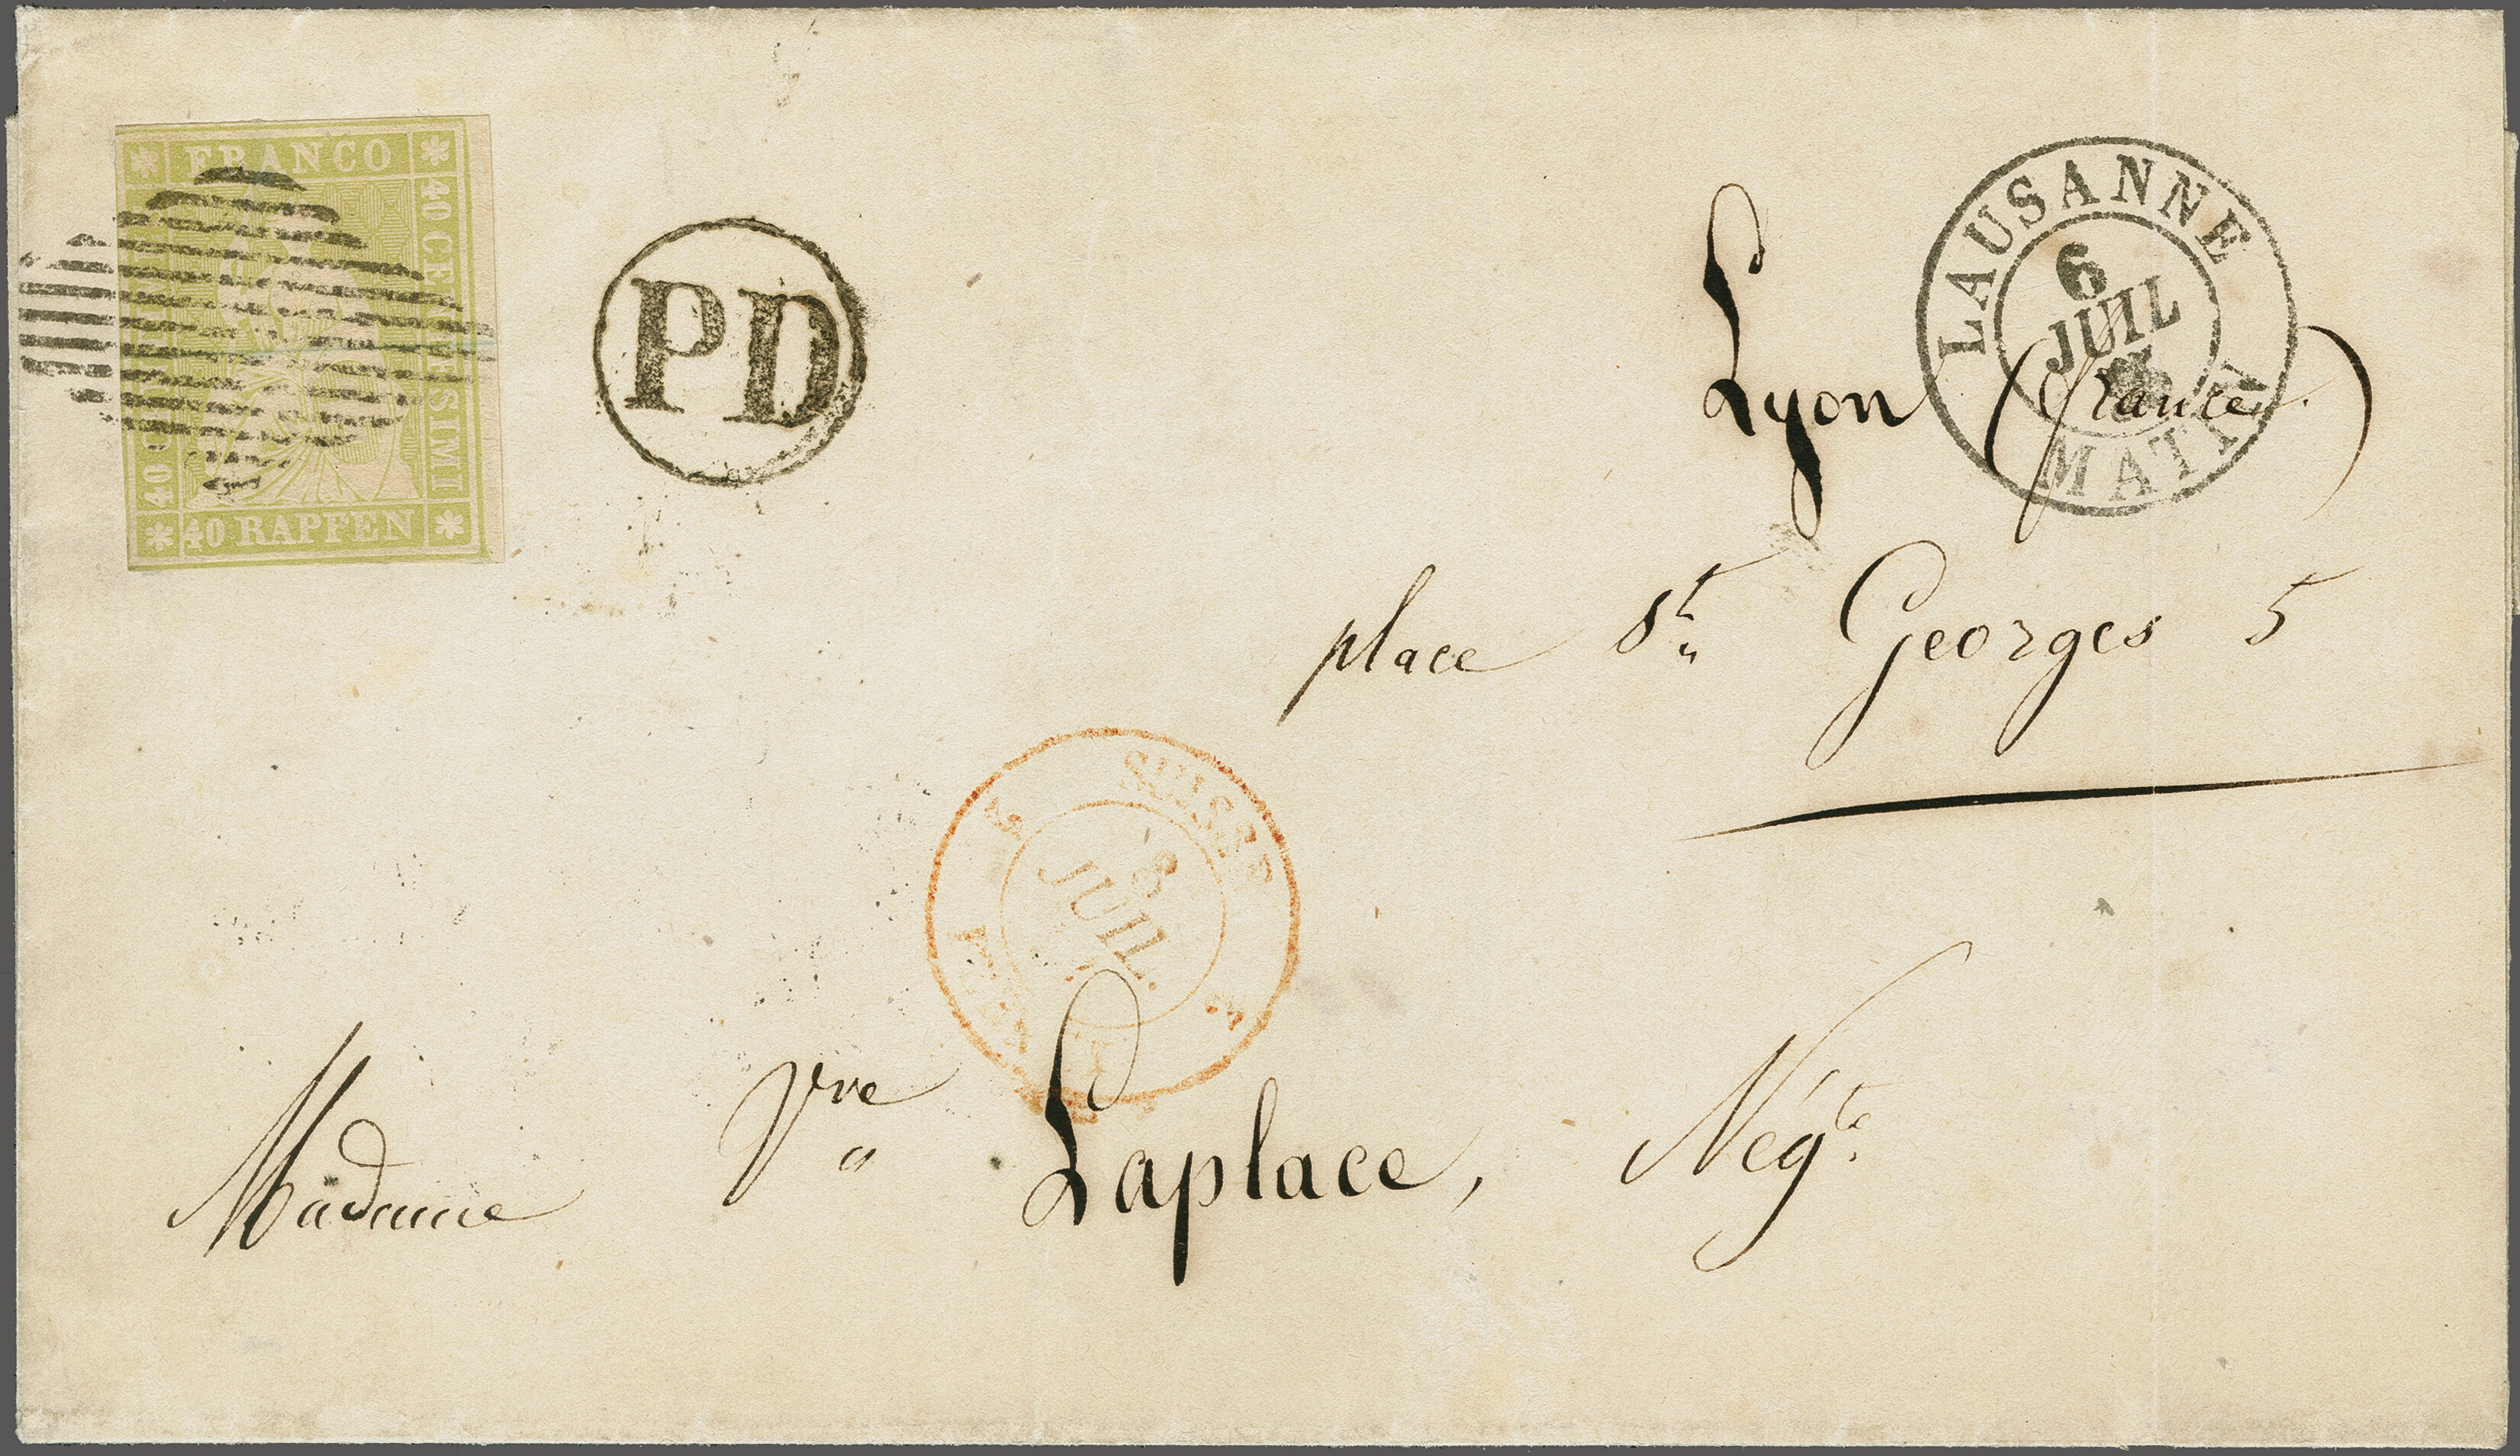 FRANCO
40 CENTESIMI
40
40 RAPPEN
PD
LAUSANNE
6
JUIL
MATIN
Lyon (france)
place St Georges 5
SUISSE
8
JUIL.
2
Madame Vve Laplace, Négte.